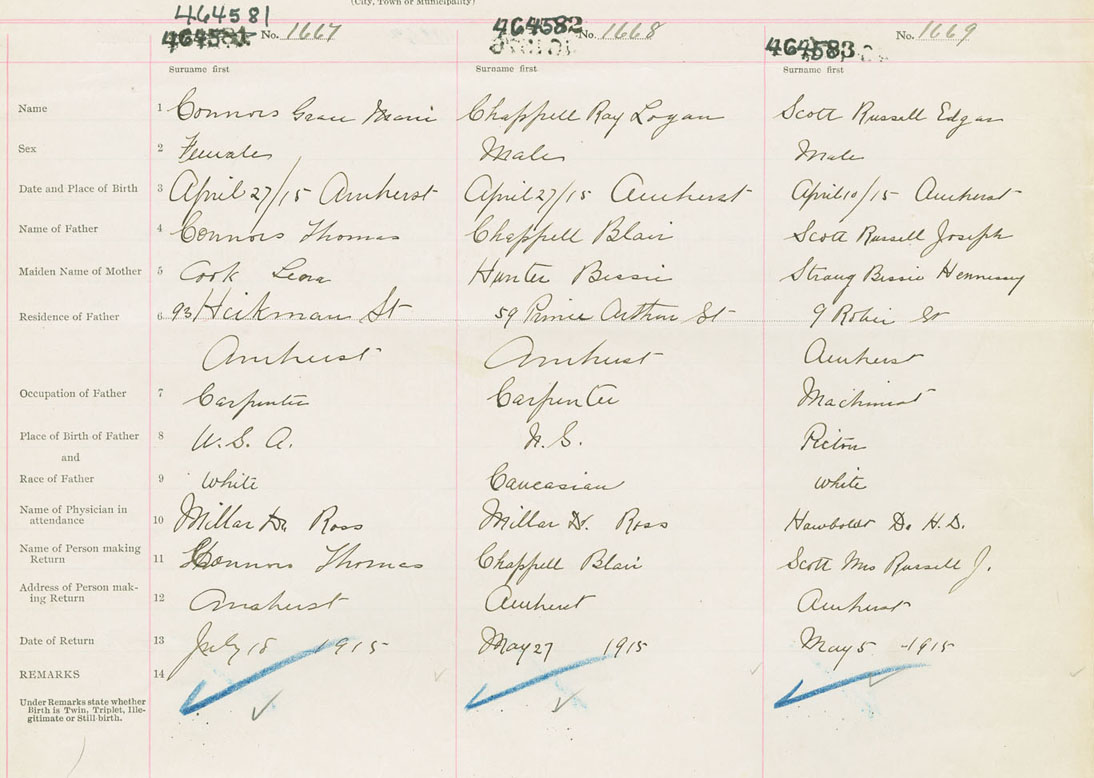 (City, Town or Municipality)
464581 464582
464581 No. 1667 No. 1668 464583 No. 1669
Surname first Surname first Surname first
Name 1 Connors Grace Marie Chappell Ray Logan Scott Russell Edgar
Sex 2 Female Male Male
Date and Place of Birth 3 April 27/15 Amherst April 27/15 Amherst April 10/15 Amherst
Name of Father 4 Connors Thomas Chappell Blair Scott Russell Joseph
Maiden Name of Mother 5 Cook Leona Hunter Bessie Strang Bessie Hennessy
Residence of Father 6 93 Hickman St 59 Prince Arthur St 9 Robie St
Amherst Amherst Amherst
Occupation of Father 7 Carpenter Carpenter Machinist
Place of Birth of Father 8 U.S.A. N.S. Pictou
and
Race of Father 9 White Caucasian White
Name of Physician in
attendance 10 Millar Dr Ross Millar Dr. Ross Hawboldt Dr H.D.
Name of Person making
Return 11 Connors Thomas Chappell Blair Scott Mrs Russell J.
Address of Person mak-
ing Return 12 Amaherst Amherst Amherst
Date of Return 13 July 18 1915 May 27 1915 May 5 -1915
REMARKS 14
Under Remarks state whether
Birth is Twin, Triplet, Ille-
gitimate or Still-birth.